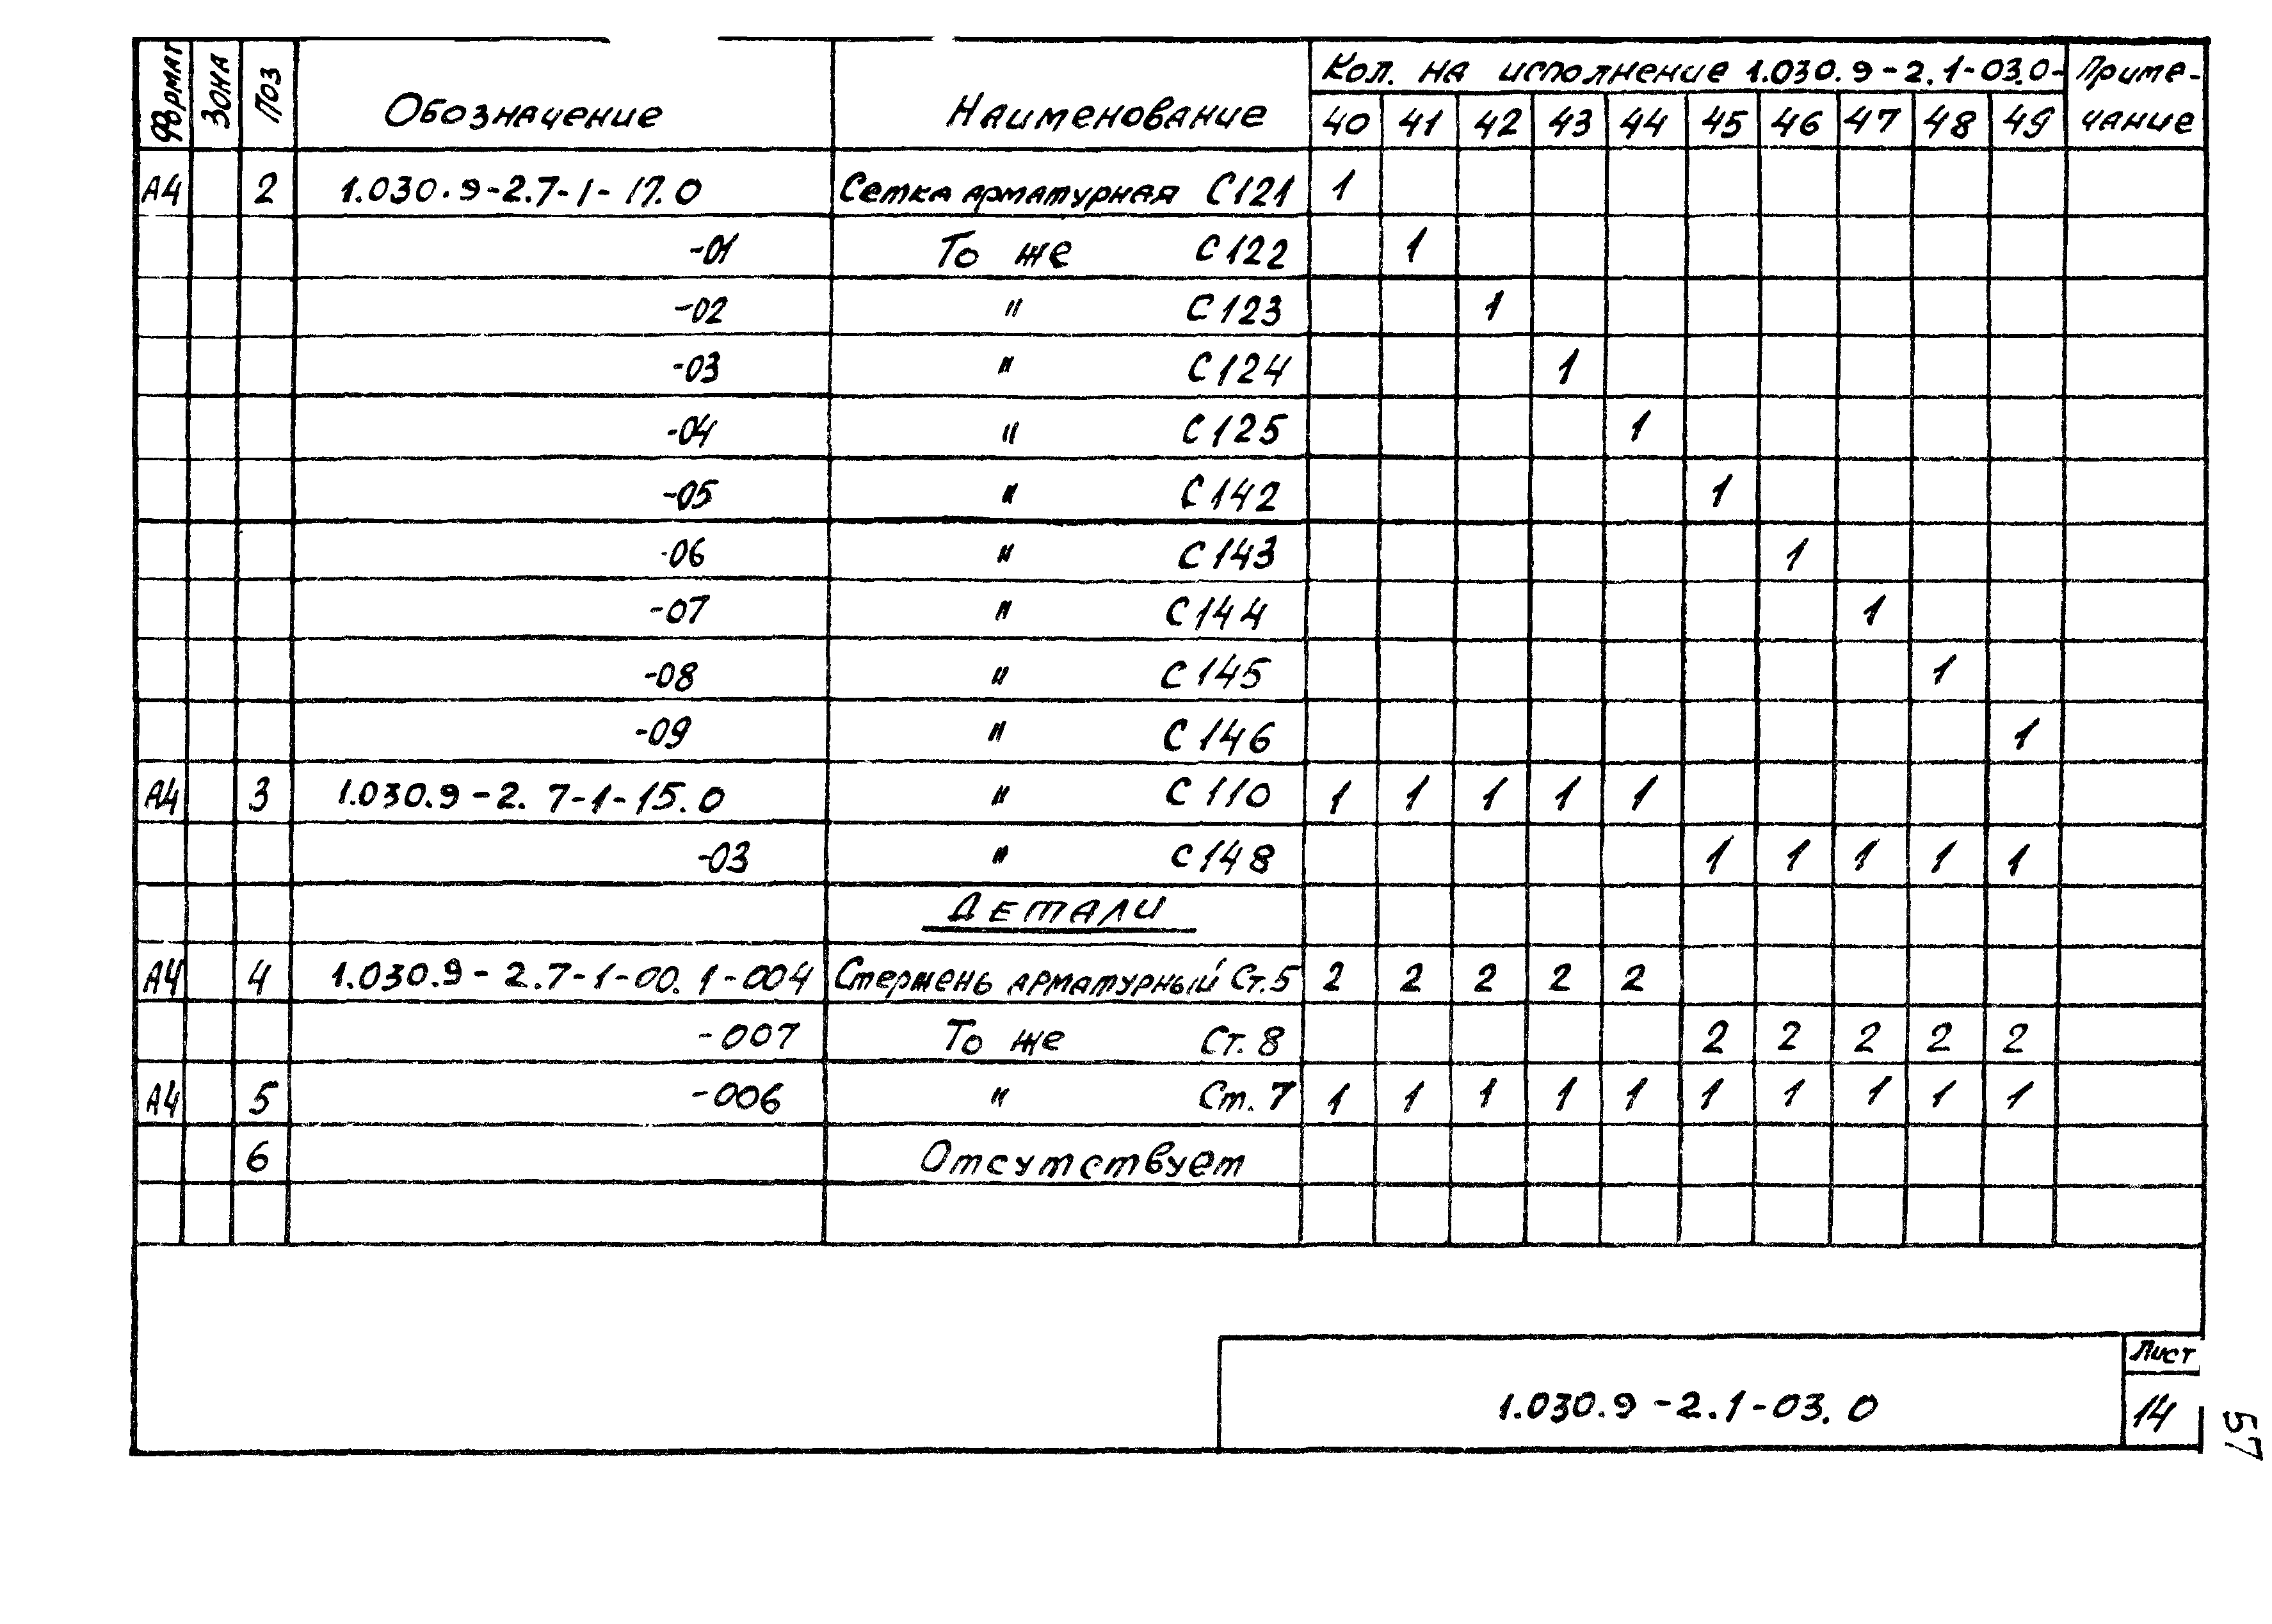 Формат Зона Поз Обозначение Наименование Кол. на исполнение 1.030.9-2.1-03.0- Приме-
40 41 42 43 44 45 46 47 48 49 чание
А4 2 1.030.9-2.7-1-17.0 Сетка арматурная С121 1
-01 То же С122 1
-02 " С123 1
-03 " С124 1
-04 " С125 1
-05 " С142 1
-06 " С143 1
-07 " С144 1
-08 " С145 1
-09 " С146 1
А4 3 1.030.9-2.7-1-15.0 " С110 1 1 1 1 1
-03 " С148 1 1 1 1 1
Детали
А4 4 1.030.9-2.7-1-00.1-004 Стержень арматурный Ст.5 2 2 2 2 2
-007 То же Ст.8 2 2 2 2 2
А4 5 -006 " Ст.7 1 1 1 1 1 1 1 1 1 1
6 Отсутствует
Лист
1.030.9-2.1-03.0 14
57